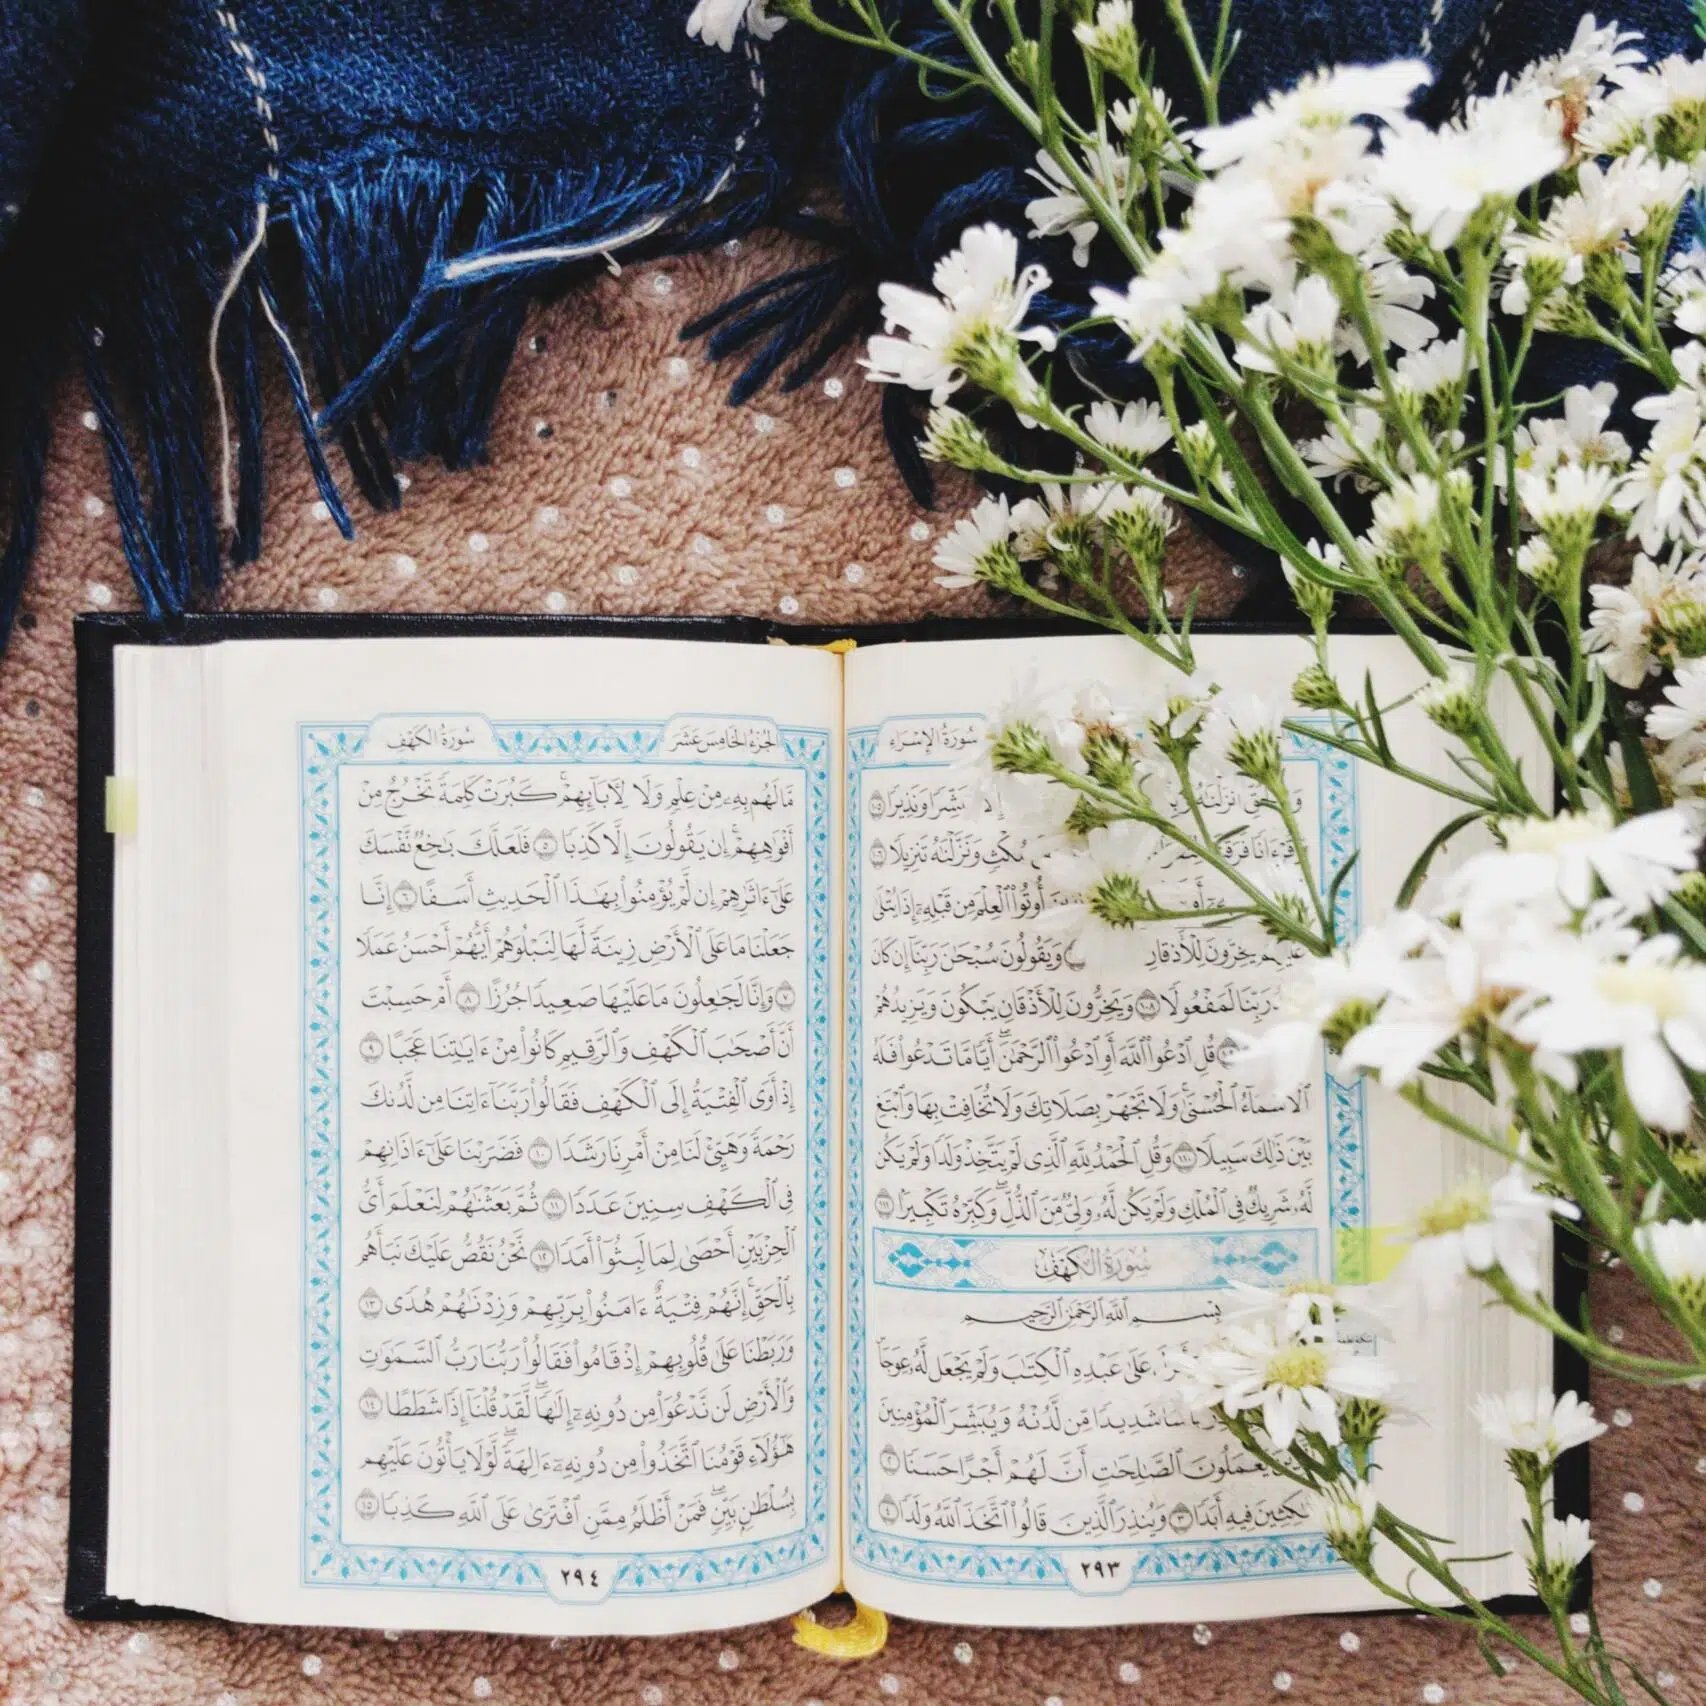 سُورَةُ الإِسْرَاءِ
أَنزَلْنَٰهُ إِلَّا مُبَشِّرًا وَنَذِيرًا ١٠٥
مُكْثٍ وَنَزَّلْنَٰهُ تَنزِيلًا ١٠٦
أُوتُوا۟ ٱلْعِلْمَ مِن قَبْلِهِۦٓ إِذَا يُتْلَىٰ
عَلَيْهِمْ يَخِرُّونَ لِلْأَذْقَانِ وَيَقُولُونَ سُبْحَٰنَ رَبِّنَآ إِن كَانَ
رَبِّنَا لَمَفْعُولًا ١٠٨ وَيَخِرُّونَ لِلْأَذْقَانِ يَبْكُونَ وَيَزِيدُهُمْ
قُلِ ٱدْعُوا۟ ٱللَّهَ أَوِ ٱدْعُوا۟ ٱلرَّحْمَٰنَ ۖ أَيًّا مَّا تَدْعُوا۟ فَلَهُ
ٱلْأَسْمَآءُ ٱلْحُسْنَىٰ ۚ وَلَا تَجْهَرْ بِصَلَاتِكَ وَلَا تُخَافِتْ بِهَا وَٱبْتَغِ
بَيْنَ ذَٰلِكَ سَبِيلًا ١١٠ وَقُلِ ٱلْحَمْدُ لِلَّهِ ٱلَّذِى لَمْ يَتَّخِذْ وَلَدًا وَلَمْ يَكُن
لَّهُۥ شَرِيكٌ فِى ٱلْمُلْكِ وَلَمْ يَكُن لَّهُۥ وَلِىٌّ مِّنَ ٱلذُّلِّ ۖ وَكَبِّرْهُ تَكْبِيرًۢا ١١١
سُورَةُ الكَهْفِ
بِسْمِ ٱللَّهِ ٱلرَّحْمَٰنِ ٱلرَّحِيمِ
عَلَىٰ عَبْدِهِ ٱلْكِتَٰبَ وَلَمْ يَجْعَل لَّهُۥ عِوَجَا ۜ
شَدِيدًا مِّن لَّدُنْهُ وَيُبَشِّرَ ٱلْمُؤْمِنِينَ
يَعْمَلُونَ ٱلصَّٰلِحَٰتِ أَنَّ لَهُمْ أَجْرًا حَسَنًا ٢
مَّٰكِثِينَ فِيهِ أَبَدًا ٣ وَيُنذِرَ ٱلَّذِينَ قَالُوا۟ ٱتَّخَذَ ٱللَّهُ وَلَدًا ٤
٢٩٣
الجُزْءُ الخَامِسَ عَشَرَ سُورَةُ الكَهْفِ
مَّا لَهُم بِهِۦ مِنْ عِلْمٍ وَلَا لِءَابَآئِهِمْ ۚ كَبُرَتْ كَلِمَةً تَخْرُجُ مِنْ
أَفْوَٰهِهِمْ ۚ إِن يَقُولُونَ إِلَّا كَذِبًا ٥ فَلَعَلَّكَ بَٰخِعٌ نَّفْسَكَ
عَلَىٰٓ ءَاثَٰرِهِمْ إِن لَّمْ يُؤْمِنُوا۟ بِهَٰذَا ٱلْحَدِيثِ أَسَفًا ٦ إِنَّا
جَعَلْنَا مَا عَلَى ٱلْأَرْضِ زِينَةً لَّهَا لِنَبْلُوَهُمْ أَيُّهُمْ أَحْسَنُ عَمَلًا
٧ وَإِنَّا لَجَٰعِلُونَ مَا عَلَيْهَا صَعِيدًا جُرُزًا ٨ أَمْ حَسِبْتَ
أَنَّ أَصْحَٰبَ ٱلْكَهْفِ وَٱلرَّقِيمِ كَانُوا۟ مِنْ ءَايَٰتِنَا عَجَبًا ٩
إِذْ أَوَى ٱلْفِتْيَةُ إِلَى ٱلْكَهْفِ فَقَالُوا۟ رَبَّنَآ ءَاتِنَا مِن لَّدُنكَ
رَحْمَةً وَهَيِّئْ لَنَا مِنْ أَمْرِنَا رَشَدًا ١٠ فَضَرَبْنَا عَلَىٰٓ ءَاذَانِهِمْ
فِى ٱلْكَهْفِ سِنِينَ عَدَدًا ١١ ثُمَّ بَعَثْنَٰهُمْ لِنَعْلَمَ أَىُّ
ٱلْحِزْبَيْنِ أَحْصَىٰ لِمَا لَبِثُوٓا۟ أَمَدًا ١٢ نَّحْنُ نَقُصُّ عَلَيْكَ نَبَأَهُم
بِٱلْحَقِّ ۚ إِنَّهُمْ فِتْيَةٌ ءَامَنُوا۟ بِرَبِّهِمْ وَزِدْنَٰهُمْ هُدًى ١٣
وَرَبَطْنَا عَلَىٰ قُلُوبِهِمْ إِذْ قَامُوا۟ فَقَالُوا۟ رَبُّنَا رَبُّ ٱلسَّمَٰوَٰتِ
وَٱلْأَرْضِ لَن نَّدْعُوَا۟ مِن دُونِهِۦٓ إِلَٰهًا ۖ لَّقَدْ قُلْنَآ إِذًا شَطَطًا ١٤
هَٰٓؤُلَآءِ قَوْمُنَا ٱتَّخَذُوا۟ مِن دُونِهِۦٓ ءَالِهَةً ۖ لَّوْلَا يَأْتُونَ عَلَيْهِم
بِسُلْطَٰنٍۭ بَيِّنٍ ۖ فَمَنْ أَظْلَمُ مِمَّنِ ٱفْتَرَىٰ عَلَى ٱللَّهِ كَذِبًا ١٥
٢٩٤